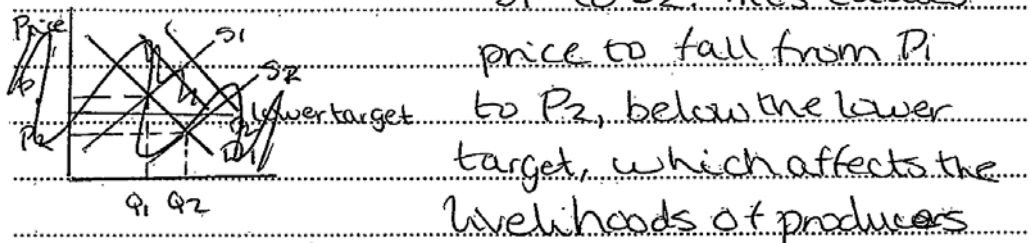 Price
S1
S2
P2
lower target
D1
Q1 Q2
price to fall from P1
to P2, below the lower
target, which affects the
livelihoods of producers